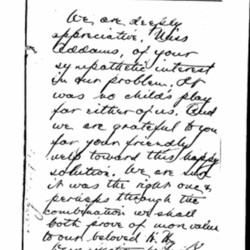 We are deeply
appreciative, Miss
Addams, of your
sympathetic interest
in our problem. It
was no child's play
for either of us. And
we are grateful to you
for your friendly
help toward this happy
solution. We are sure
it was the right one &
perhaps through the
combination we shall
both prove of more value
to our beloved